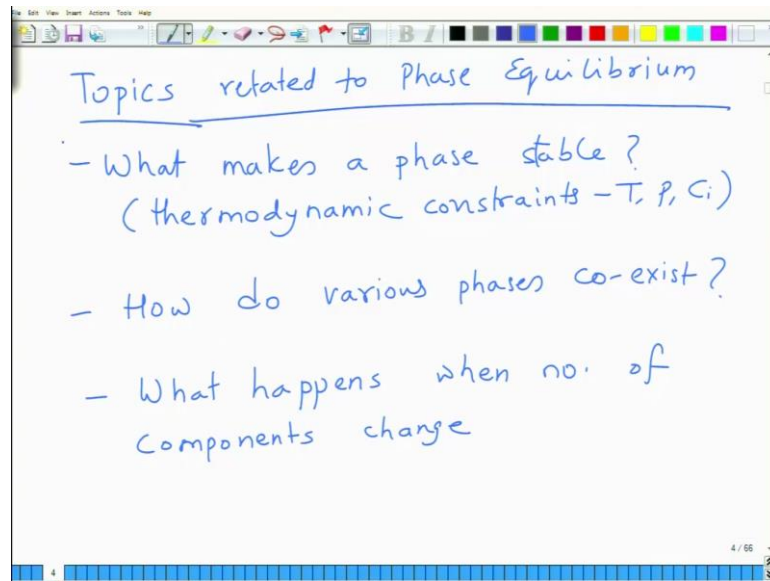 File Edit View Insert Actions Tools Help
B I
Topics related to Phase Equilibrium
- What makes a phase stable?
(thermodynamic constraints - T, P, Ci)
- How do various phases co-exist?
- What happens when no. of
components change
4 / 66
4